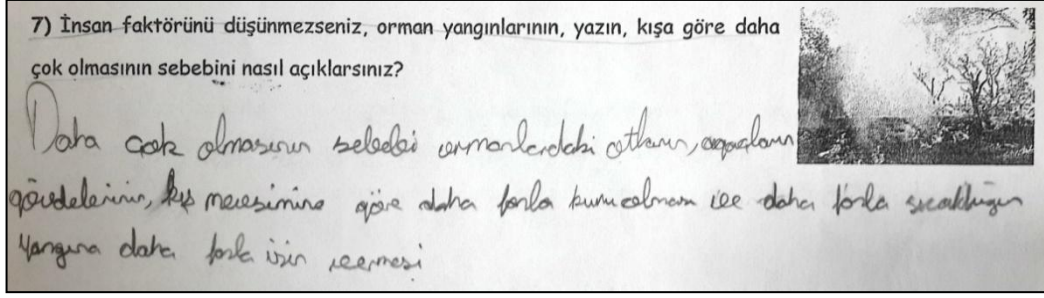 7) İnsan faktörünü düşünmezseniz, orman yangınlarının, yazın, kışa göre daha
çok olmasının sebebini nasıl açıklarsınız?
Daha çok olmasının sebebi ormanlardaki otların, ağaçların
gövdelerinin, kış mevsimine göre daha fazla kuru olması ve daha fazla sıcaklığın
yangına daha fazla izin vermesi